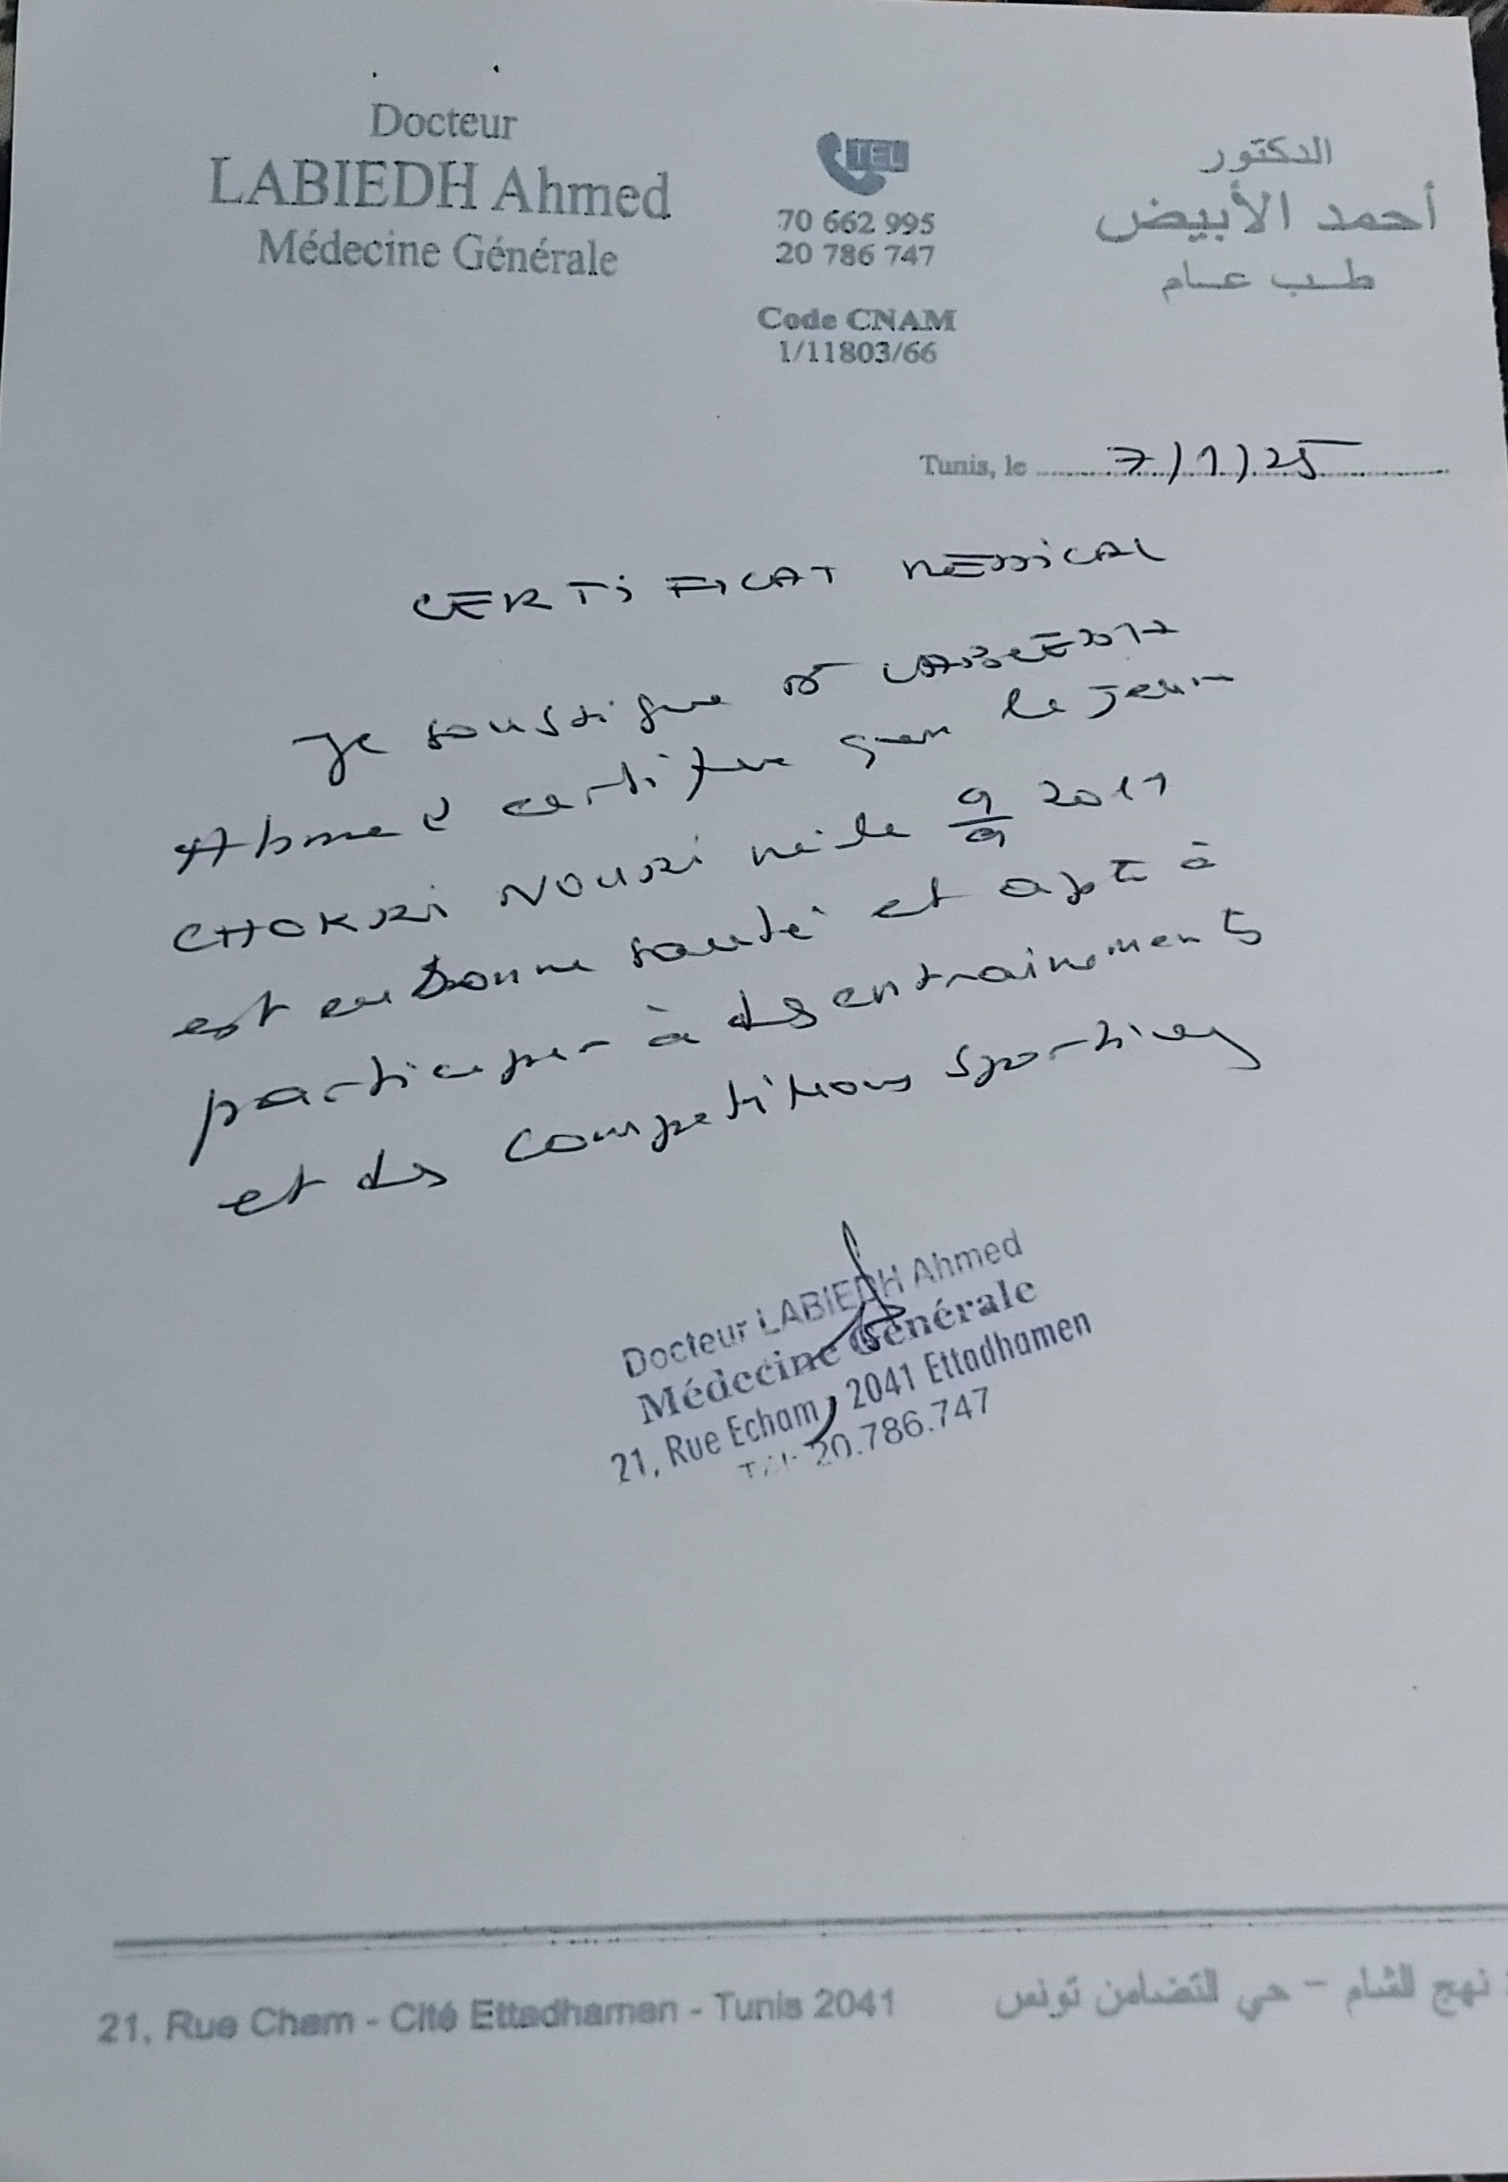 Docteur
LABIEDH Ahmed
Médecine Générale
TEL
70 662 995
20 786 747
Code CNAM
1/11803/66
الدكتور
أحمد الأبيض
طب عام
Tunis, le 7/1/25
CERTIFICAT MEDICAL
Je soussigne Dr LABIEDH
Ahmed certifie que le jeune
CHOKRI NOURI né le 9/9 2011
est en bonne santé et apte à
participer à des entrainements
et des competitions sportives
Docteur LABIEDH Ahmed
Médecine Générale
21, Rue Echam, 2041 Ettadhamen
Tél: 20.786.747
21, Rue Cham - Cité Ettadhamen - Tunis 2041
نهج الشام - حي التضامن تونس